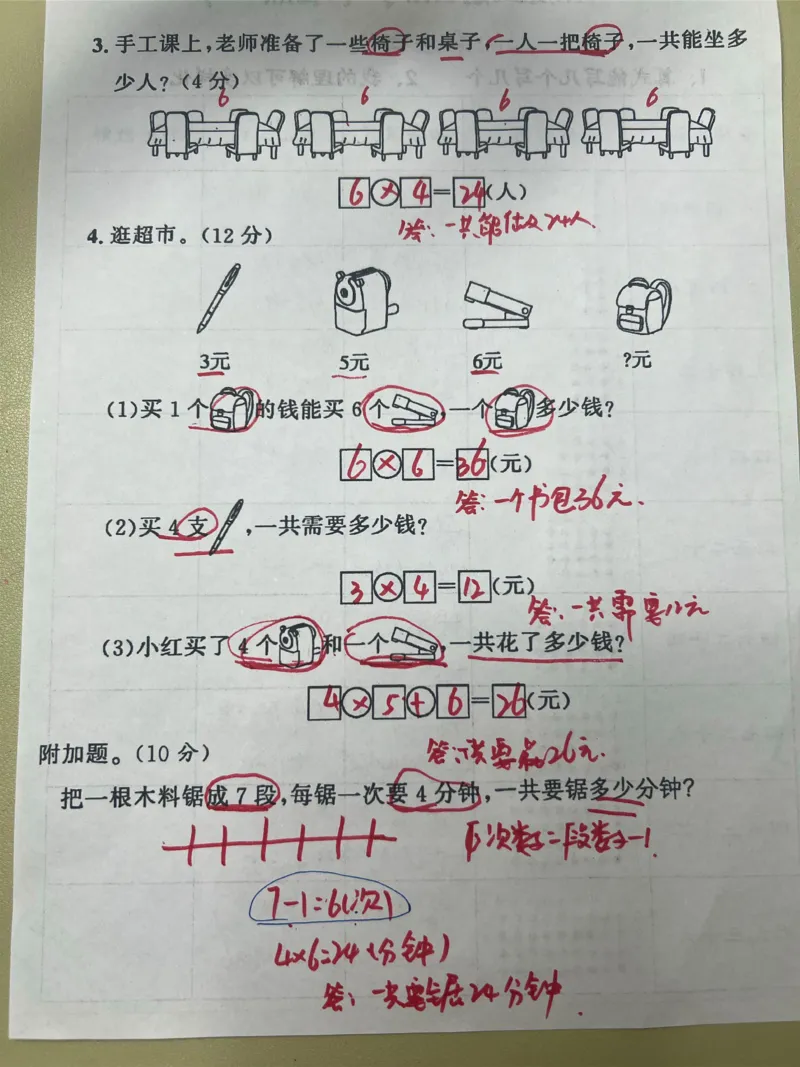 3. 手工课上,老师准备了一些椅子和桌子,一人一把椅子,一共能坐多
少人?(4 分)
6 6 6 6
6 × 4 = 24 (人)
答:一共能坐24人.
4. 逛超市。(12 分)
3元 5元 6元 ?元
(1)买 1 个 的钱能买 6 个 ,一个 多少钱?
6 × 6 = 36 (元)
答:一个书包36元.
(2)买 4 支 ,一共需要多少钱?
3 × 4 = 12 (元)
答:一共需要12元
(3)小红买了 4 个 和一个 ,一共花了多少钱?
4 × 5 + 6 = 26 (元)
答: 要 26元.
附加题。(10 分)
把一根木料锯成 7 段,每锯一次要 4 分钟,一共要锯多少分钟?
次数=段数-1
7-1=6(次)
4×6=24(分钟)
答:一共要锯24分钟.